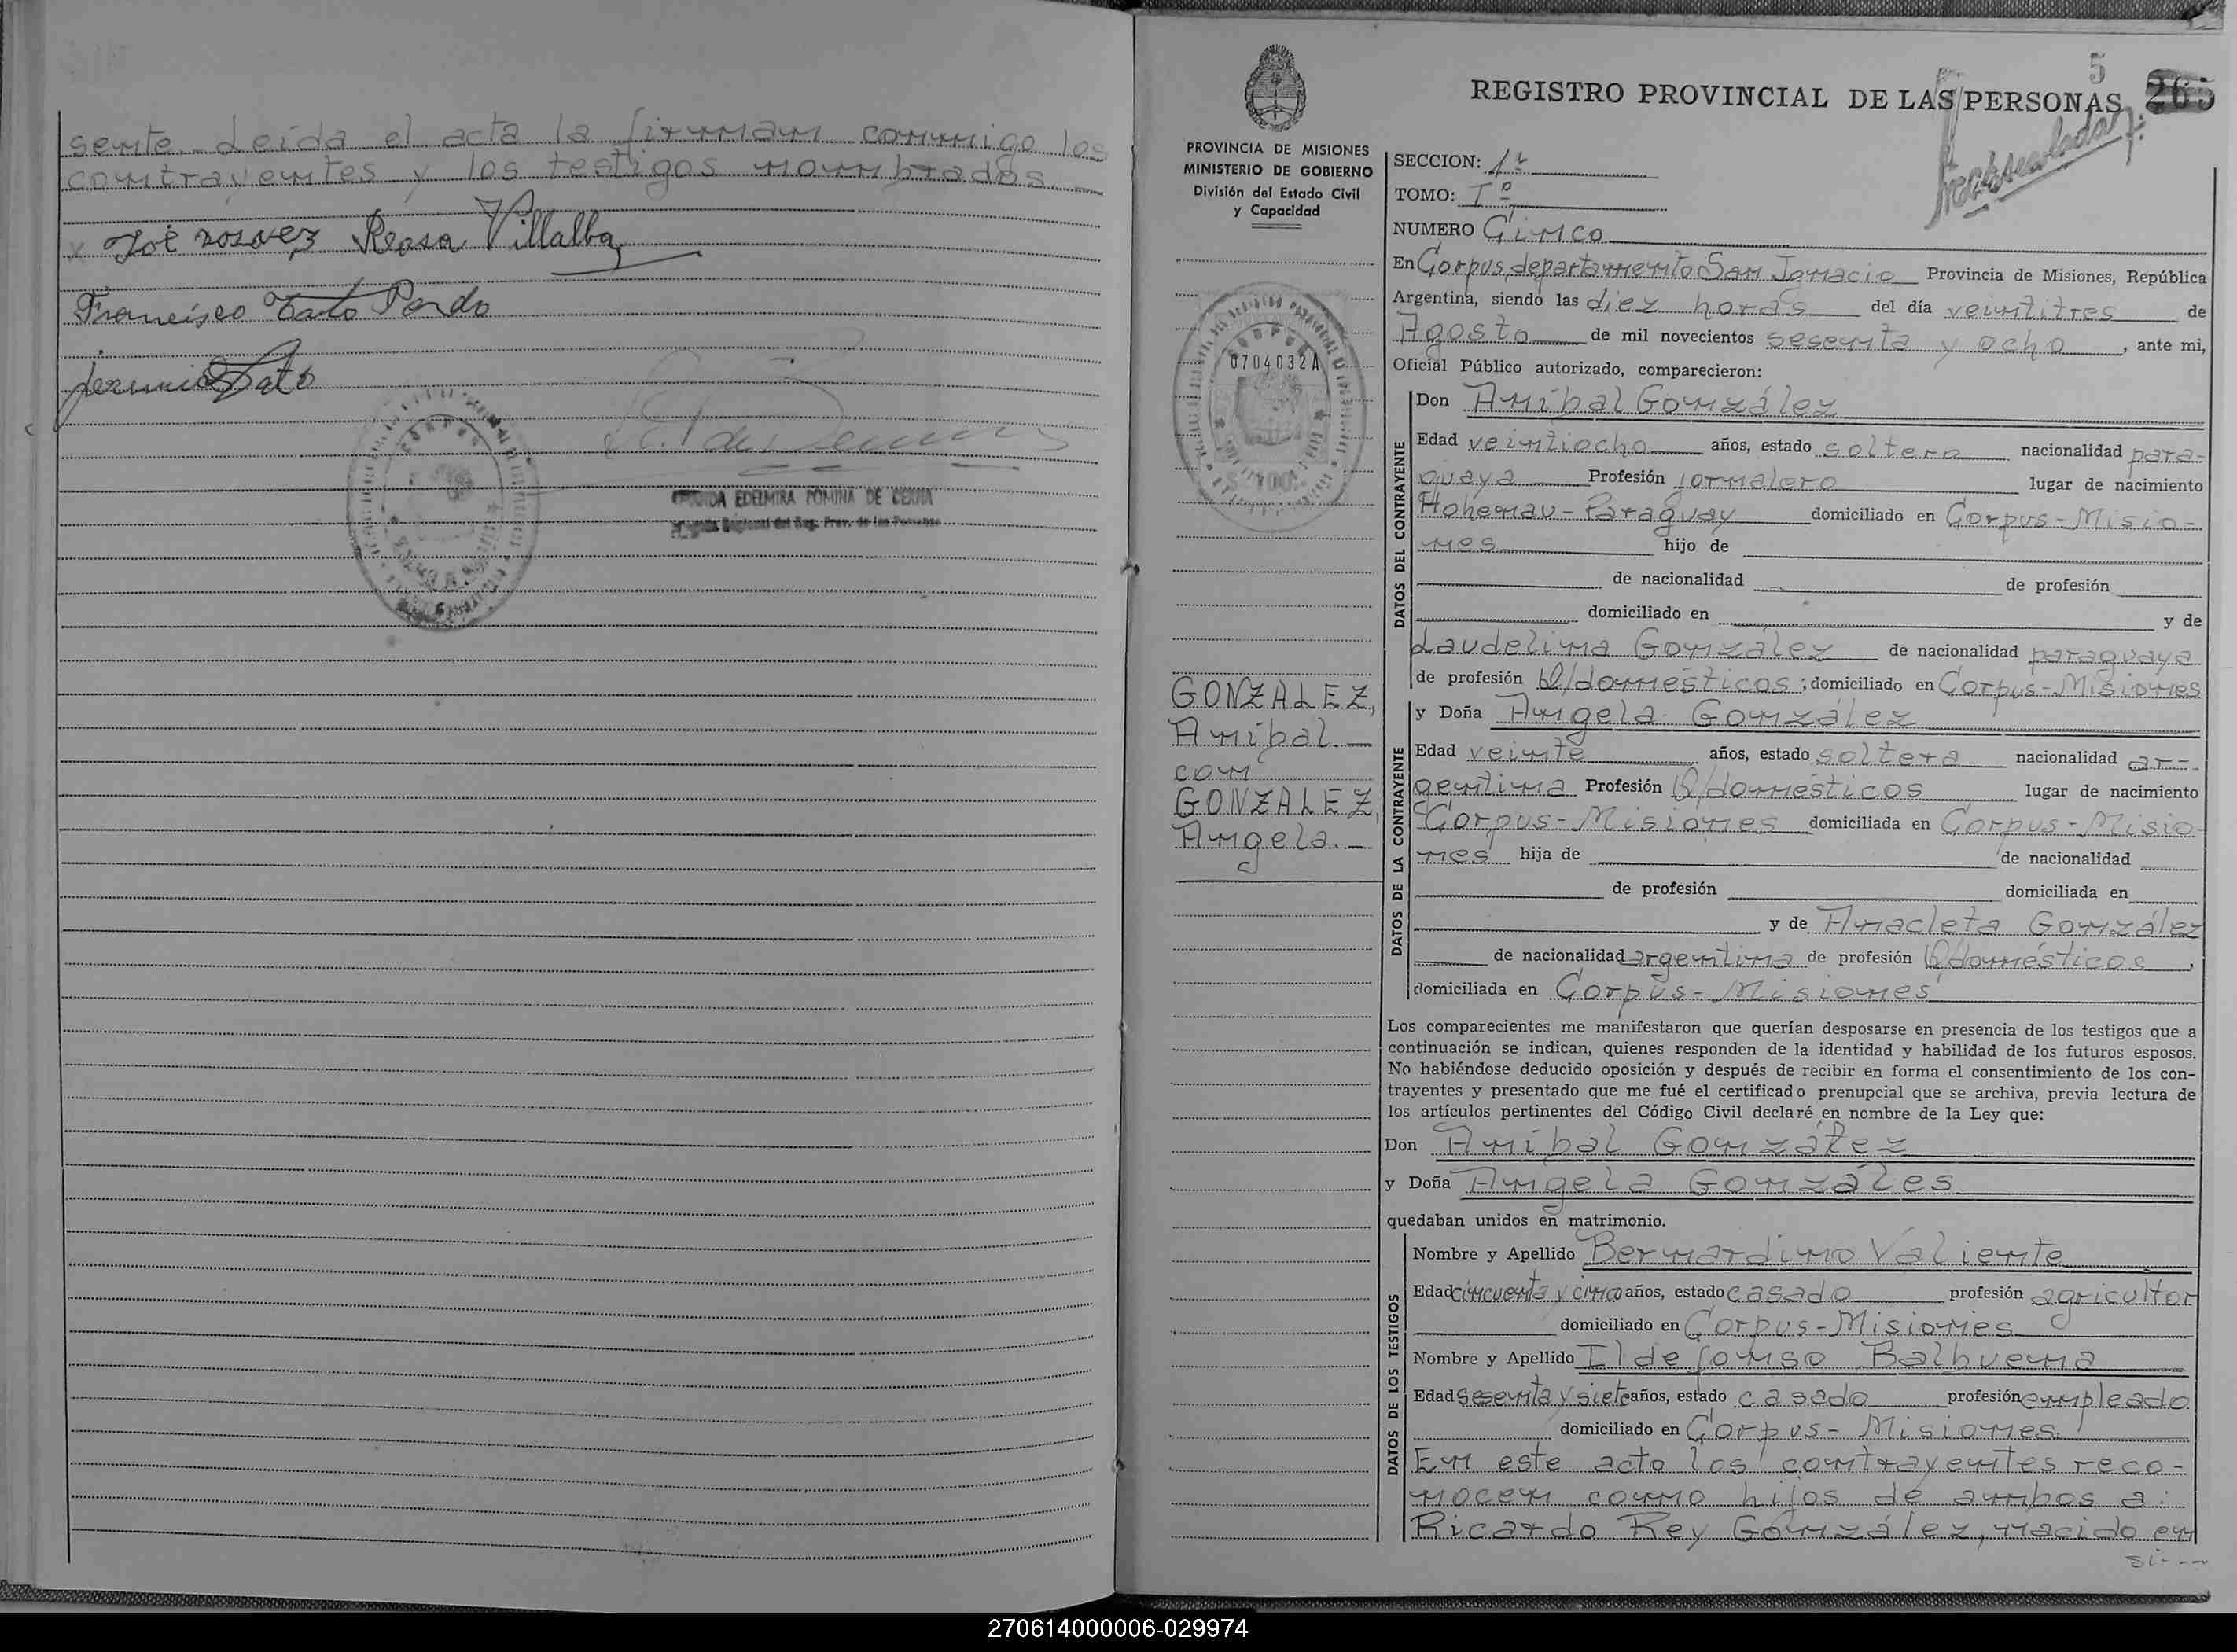 sente. Leída el acta la firman conmigo los
contrayentes y los testigos nombrados.
Villalba
Francisco Tato Pardo
EDELMIRA POMINA DE
5 265
REGISTRO PROVINCIAL DE LAS PERSONAS
PROVINCIA DE MISIONES
MINISTERIO DE GOBIERNO
División del Estado Civil
y Capacidad
0704032A
SECCION: 1ª
TOMO: Iº
NUMERO Cinco
En Corpus, departamento San Ignacio Provincia de Misiones, República
Argentina, siendo las diez horas del día veintitres de
Agosto de mil novecientos sesenta y ocho, ante mi,
Oficial Público autorizado, comparecieron:
DATOS DEL CONTRAYENTE
Don Aníbal González
Edad veintiocho años, estado soltero nacionalidad para-
guaya Profesión jornalero lugar de nacimiento
Hohenau - Paraguay domiciliado en Corpus - Misio-
nes hijo de
de nacionalidad de profesión
domiciliado en y de
Laudelina González de nacionalidad paraguaya
de profesión Q/domésticos; domiciliado en Corpus - Misiones
GONZALEZ,
Aníbal. -
con
GONZALEZ,
Angela. -
DATOS DE LA CONTRAYENTE
y Doña Angela González
Edad veinte años, estado soltera nacionalidad ar-
gentina Profesión Q/domésticos lugar de nacimiento
Corpus - Misiones domiciliada en Corpus - Misio-
nes hija de de nacionalidad
de profesión domiciliada en
y de Anacleta González
de nacionalidad argentina de profesión Q/domésticos,
domiciliada en Corpus - Misiones
Los comparecientes me manifestaron que querían desposarse en presencia de los testigos que a
continuación se indican, quienes responden de la identidad y habilidad de los futuros esposos.
No habiéndose deducido oposición y después de recibir en forma el consentimiento de los con-
trayentes y presentado que me fué el certificado prenupcial que se archiva, previa lectura de
los artículos pertinentes del Código Civil declaré en nombre de la Ley que:
Don Aníbal González
y Doña Angela Gonzáles
quedaban unidos en matrimonio.
DATOS DE LOS TESTIGOS
Nombre y Apellido Bernardino Valiente
Edad cincuenta y cinco años, estado casado profesión agricultor
domiciliado en Corpus - Misiones
Nombre y Apellido Ildefonso Balbuena
Edad sesenta y siete años, estado casado profesión empleado
domiciliado en Corpus - Misiones.
En este acto los contrayentes reco-
nocen como hijos de ambos a:
Ricardo Rey González, nacido en
si---
270614000006-029974